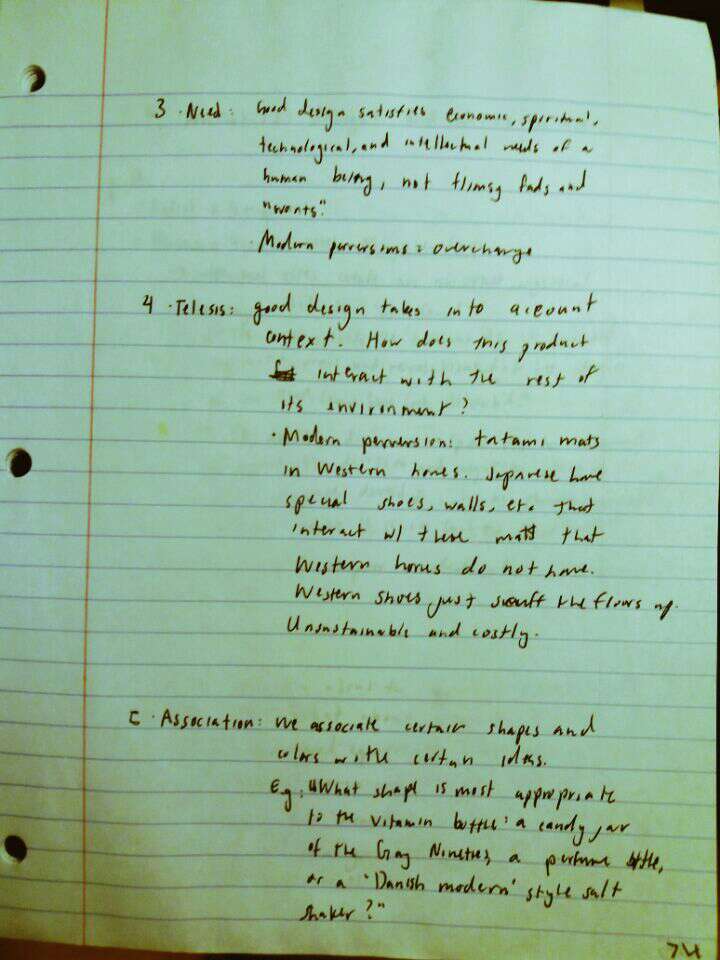 3 · Need: Good design satisfies economic, spiritual,
technological, and intellectual needs of a
human being, not flimsy fads and
"wants."
· Modern perversions = overcharge
4 · Telesis: good design takes into account
context. How does this product
interact with the rest of
its environment?
· Modern perversion: tatami mats
in Western homes. Japanese have
special shoes, walls, etc. that
interact w/ these mats that
Western homes do not have.
Western shoes just scuff the floors up.
Unsustainable and costly.
5 · Association: we associate certain shapes and
colors with certain ideas.
Eg: "What shape is most appropriate
to the vitamin bottle: a candy jar
of the Gay Nineties, a perfume bottle,
or a 'Danish modern' style salt
shaker?"
74